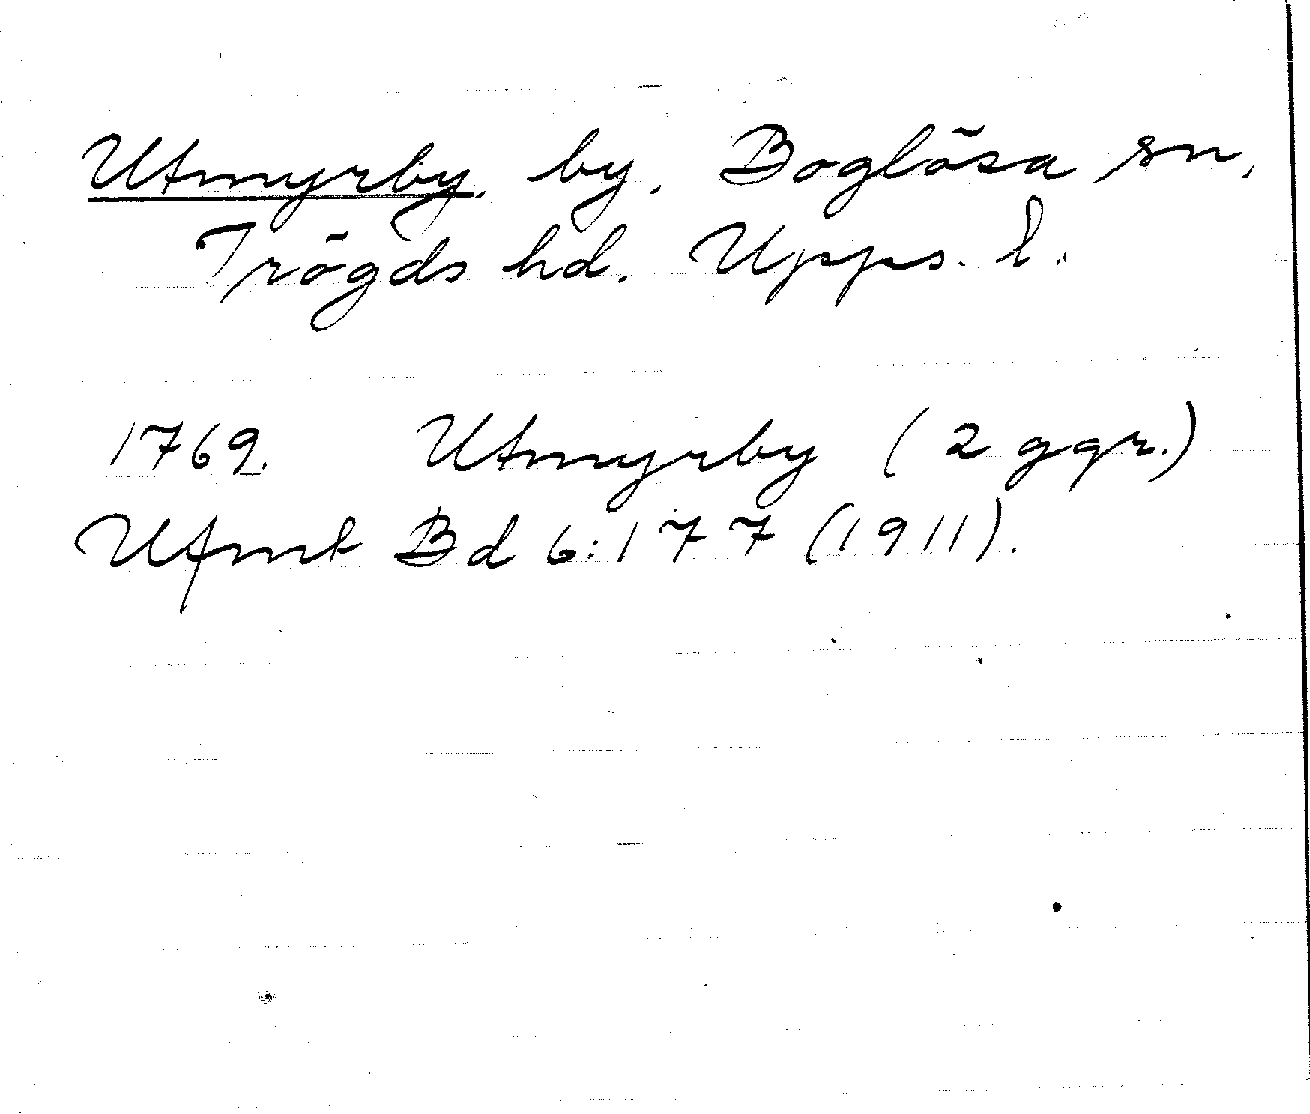 Utmyrby, by, Boglösa sn,
Trögds hd. Upps. l.
1769. Utmyrby (2 ggr.)
Ufmt Bd 6:177 (1911).